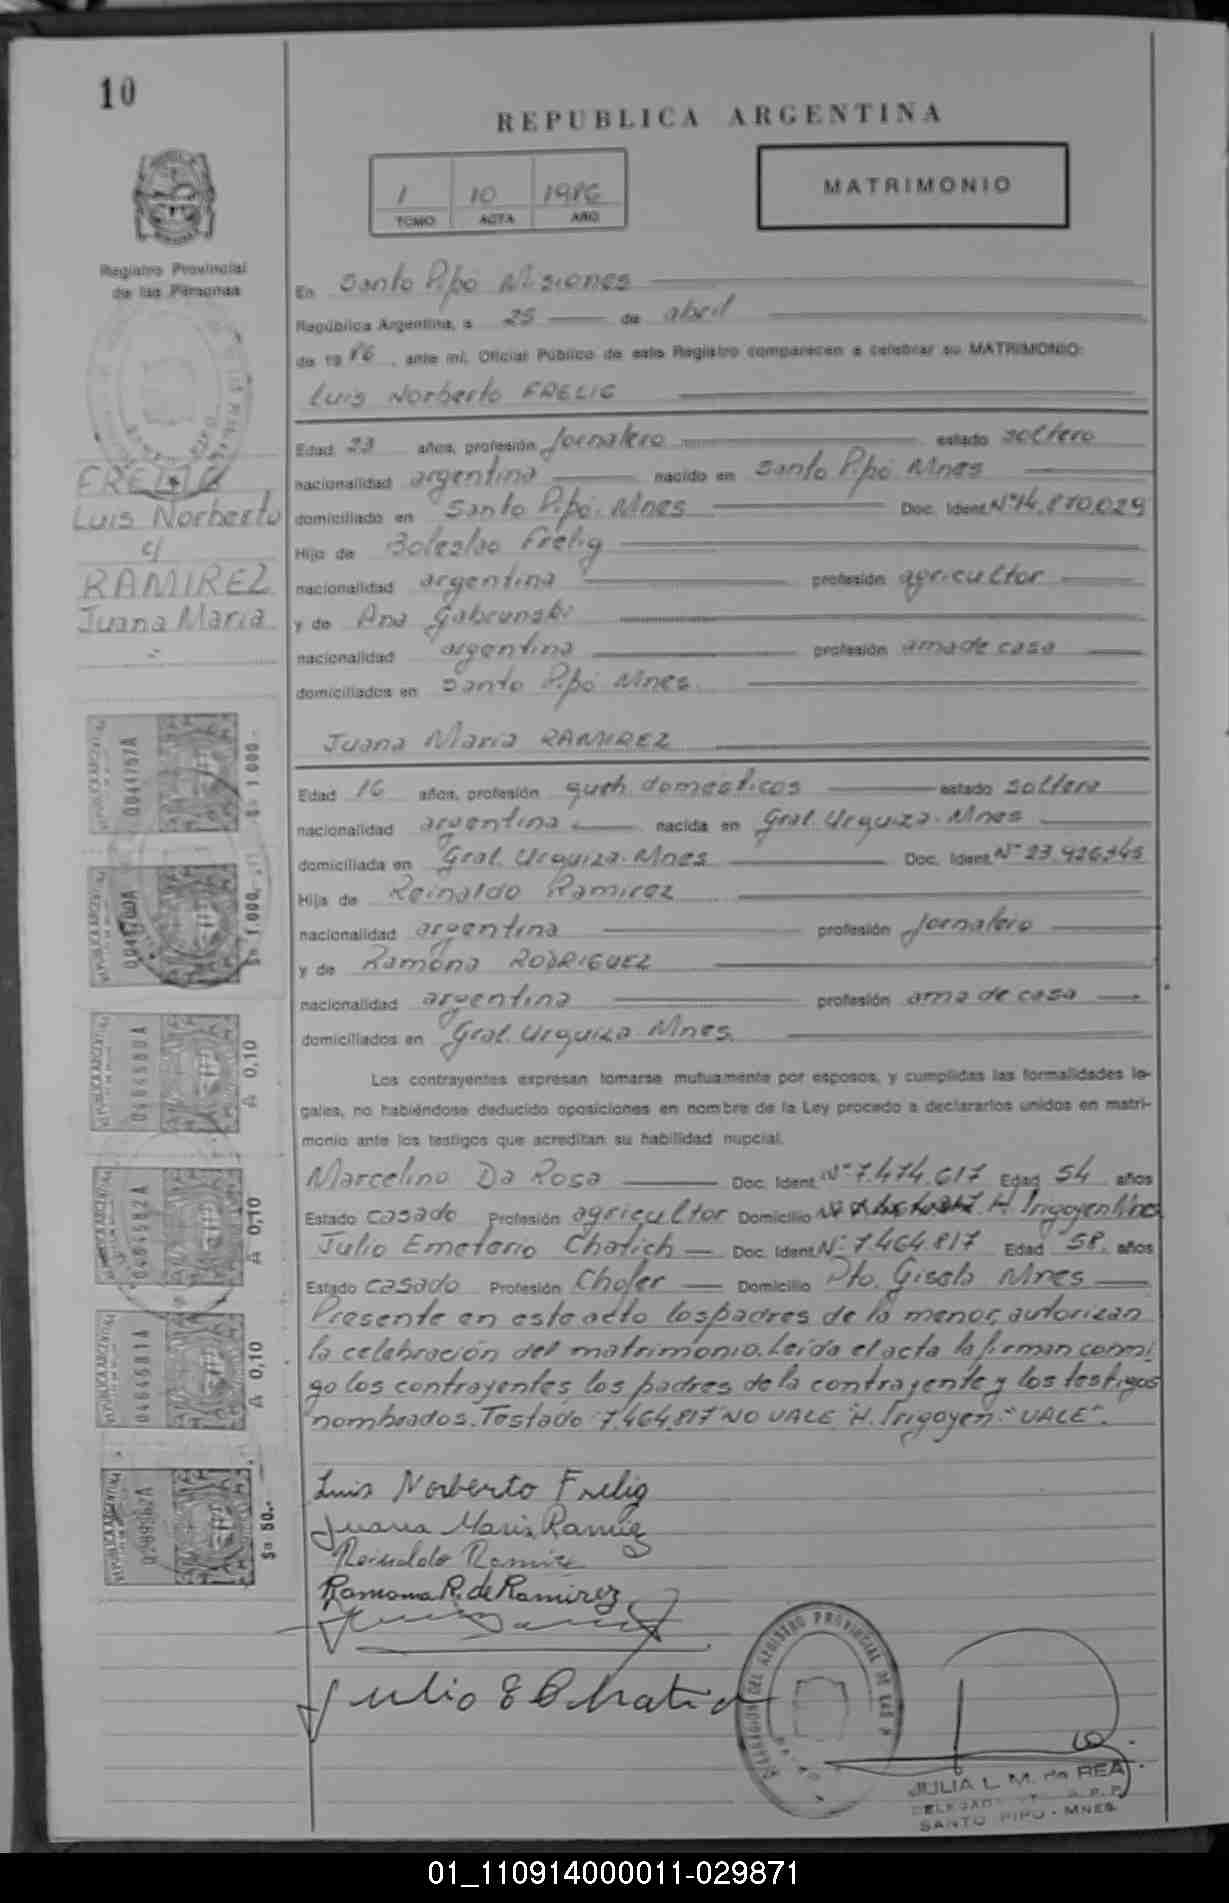 10
REPUBLICA ARGENTINA
1 10 1986
TOMO ACTA AÑO
MATRIMONIO
Registro Provincial
de las Personas
En Santo Pipó Misiones
República Argentina, a 25 de abril
de 19 86, ante mí, Oficial Público de este Registro comparecen a celebrar su MATRIMONIO:
Luis Norberto FRELIG
Edad 23 años, profesión Jornalero estado soltero
nacionalidad argentina nacido en Santo Pipó Mnes
domiciliado en Santo Pipó. Mnes Doc. Ident. Nº 14.870.029
Hijo de Boleslao Frelig
nacionalidad argentina profesión agricultor
y de Ana Gabrunski
nacionalidad argentina profesión ama de casa
domiciliados en Santo Pipó Mnes.
FRELIG
Luis Norberto
c/
RAMIREZ
Juana Maria
Juana Maria RAMIREZ
Edad 16 años, profesión queh. domesticos estado soltera
nacionalidad argentina nacida en Gral. Urquiza. Mnes
domiciliada en Gral. Urquiza. Mnes Doc. Ident. Nº 23.926.345
Hija de Reinaldo Ramirez
nacionalidad argentina profesión Jornalero
y de Ramona RODRIGUEZ
nacionalidad argentina profesión ama de casa
domiciliados en Gral. Urquiza Mnes.
Los contrayentes expresan tomarse mutuamente por esposos, y cumplidas las formalidades le-
gales, no habiéndose deducido oposiciones en nombre de la Ley procedo a declararlos unidos en matri-
monio ante los testigos que acreditan su habilidad nupcial.
Marcelino Da Rosa Doc. Ident. Nº 7.474.617 Edad 54 años
Estado casado Profesión agricultor Domicilio H. Irigoyen Mnes
Julio Emeterio Chatich Doc. Ident. Nº 7.464.817 Edad 58 años
Estado casado Profesión Chofer Domicilio Pto. Gisela Mnes
Presente en este acto los padres de la menor, autorizan
la celebración del matrimonio. Leída el acta la firman conmi
go los contrayentes, los padres de la contrayente y los testigos
nombrados. Testado: 7.464.817 NO VALE "H. Irigoyen" "VALE".
Luis Norberto Frelig
Juana Maria Ramirez
Reinaldo Ramirez
Ramona R. de Ramirez
Julio E Chatich
0044757A $a 1.000.-
$a 1.000.-
0464580A A 0,10
0464582A A 0,10
0464581A A 0,10
$a 50.-
DELEGACION DEL REGISTRO PROVINCIAL DE LAS P
JULIA L. M. de REA
SANTO PIPO - MNES
01_110914000011-029871